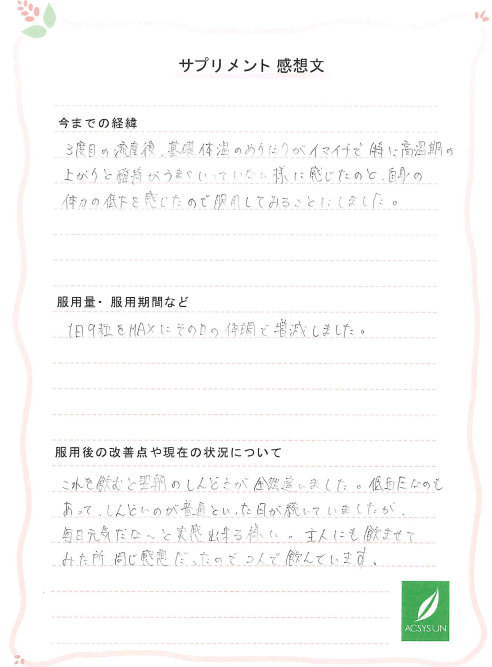 サプリメント 感想文
今までの経緯
3度目の流産後、基礎体温のめりはりがイマイチで特に高温期の
上がりと維持がうまくいっていない様に感じたのと、自身の
体力の低下を感じたので服用してみることにしました。
服用量・服用期間など
1日9粒をMAXにその日の体調で増減しました。
服用後の改善点や現在の状況について
これを飲むと翌朝のしんどさが全然違いました。低血圧なのも
あって、しんどいのが普通といった日が続いていましたが、
毎日元気だな〜と実感出来る様に。主人にも飲ませて
みた所、同じ感想だったので2人で飲んでいます。
ACSYSUN